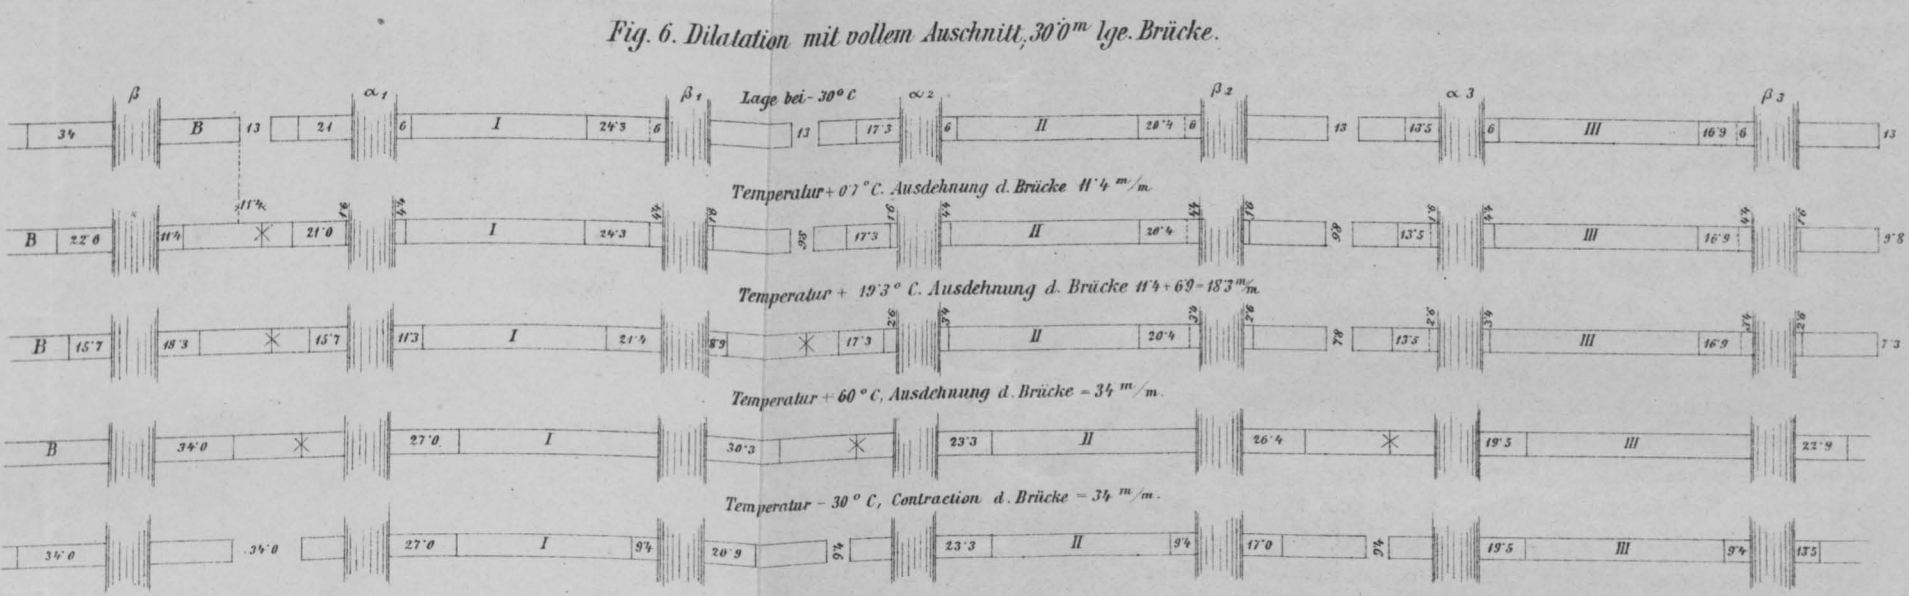 Fig. 6. Dilatation mit vollem Auschnitt, 30·0ᵐ lge. Brücke.
β α1 β1 Lage bei - 30° C α2 β2 α3 β3
34 B 13 21 6 I 24·3 6 13 17·3 6 II 20·4 6 13 13·5 6 III 16·9 6 13
Temperatur + 0·7° C. Ausdehnung d. Brücke 11·4 m/m
11·4 1·6 4·4 4·4 1·6 1·6 4·4 4·4 1·6 1·6 4·4 4·4 1·6
B 22·6 11·4 21·0 I 24·3 9·8 17·3 II 20·4 9·8 13·5 III 16·9 9·8
Temperatur + 19·3° C. Ausdehnung d. Brücke 11·4 + 6·9 = 18·3 m/m
2·6 3·4 3·4 2·6 2·6 3·4 3·4 2·6
B 15·7 18·3 15·7 11·3 I 21·4 8·9 17·3 II 20·4 7·8 13·5 III 16·9 7·3
Temperatur + 60° C, Ausdehnung d. Brücke = 34 m/m.
B 34·0 27·0 I 30·3 23·3 II 26·4 19·5 III 22·9
Temperatur - 30° C, Contraction d. Brücke = 34 m/m.
34·0 34·0 27·0 I 9·4 20·9 9·4 23·3 II 9·4 17·0 9·4 19·5 III 9·4 13·5